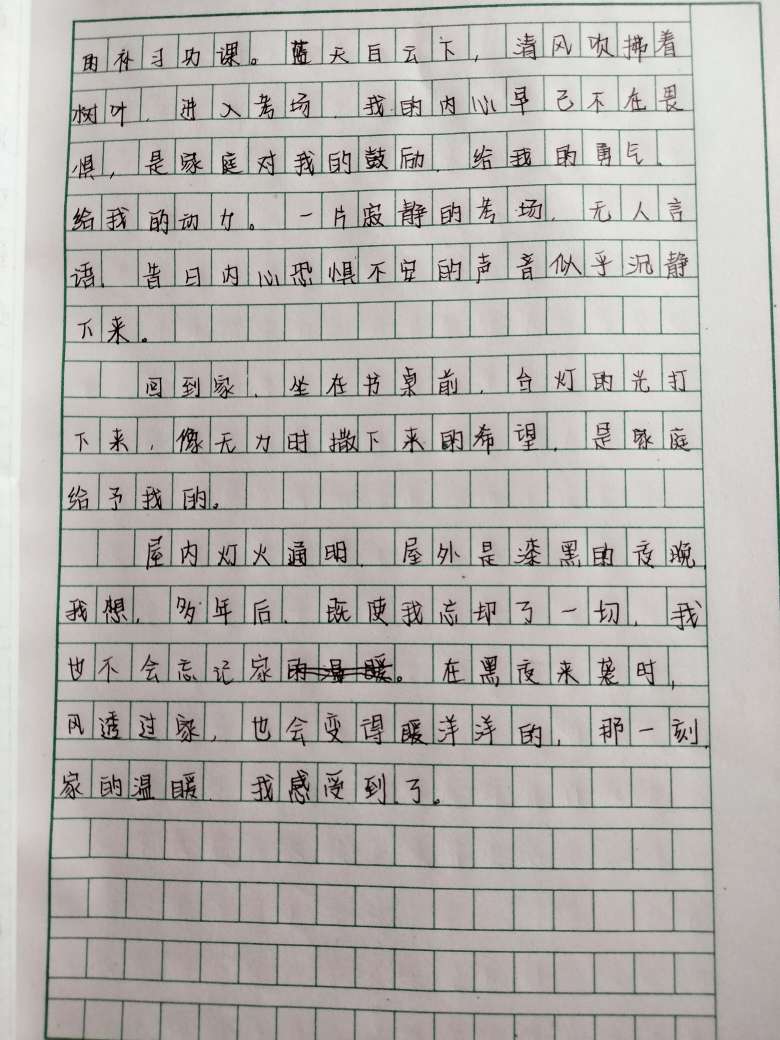 的补习功课。蓝天白云下，清风吹拂着
树叶，进入考场，我的内心早已不在畏
惧，是家庭对我的鼓励，给我的勇气，
给我的动力。一片寂静的考场，无人言
语，昔日内心恐惧不安的声音似乎沉静
下来。
回到家，坐在书桌前，台灯的光打
下来，像无力时撒下来的希望，是家庭
给予我的。
屋内灯火通明，屋外是漆黑的夜晚，
我想，多年后，既使我忘却了一切，我
也不会忘记家的温暖。在黑夜来袭时，
风透过家，也会变得暖洋洋的，那一刻，
家的温暖，我感受到了。